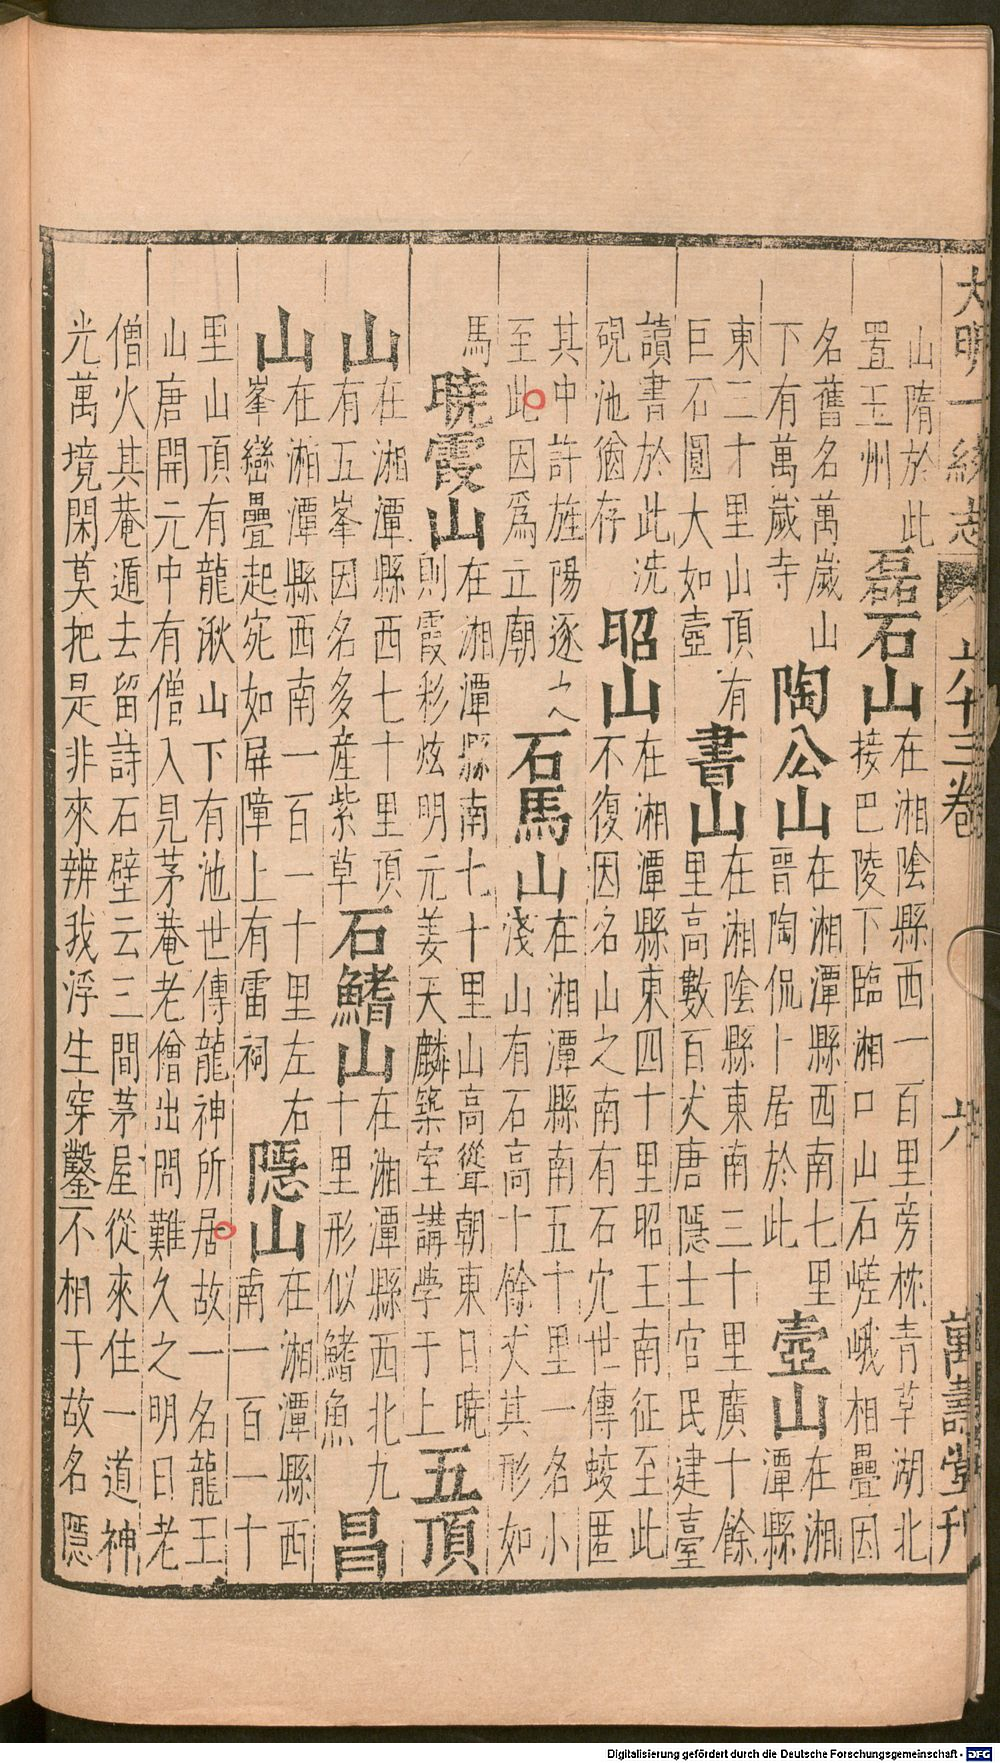 大明一統志 六十三卷 六 萬壽堂刊
山隋於此
置玉州
磊石山
在湘陰縣西一百里旁枕青草湖北
接巴陵下臨湘口山石嵯峨相疊因
名舊名萬歲山
下有萬歲寺
陶公山
在湘潭縣西南七里
晉陶侃卜居於此
壺山
在湘
潭縣
東二十里山頂有
巨石圓大如壺
書山
在湘陰縣東南三十里廣十餘
里高數百丈唐隱士官民建臺
讀書於此洗
硯池猶存
昭山
在湘潭縣東四十里昭王南征至此
不復因名山之南有石穴世傳蛟匿
其中許旌陽逐之
至此因爲立廟
石馬山
在湘潭縣南五十里一名小
淺山有石高十餘丈其形如
馬
曉霞山
在湘潭縣南七十里山高聳朝東日曉
則霞彩炫明元姜天麟築室講學于上
五頂
山
在湘潭縣西七十里頂
有五峯因名多產紫草
石鰭山
在湘潭縣西北九
十里形似鰭魚
昌
山
在湘潭縣西南一百一十里左右
峯巒疊起宛如屏障上有雷祠
隱山
在湘潭縣西
南一百一十
里山頂有龍湫山下有池世傳龍神所居故一名龍王
山唐開元中有僧入見茅菴老僧出問難久之明日老
僧火其菴遁去留詩石壁云三間茅屋從來住一道神
光萬境閑莫把是非來辨我浮生穿鑿不相干故名隱
Digitalisierung gefördert durch die Deutsche Forschungsgemeinschaft - DFG